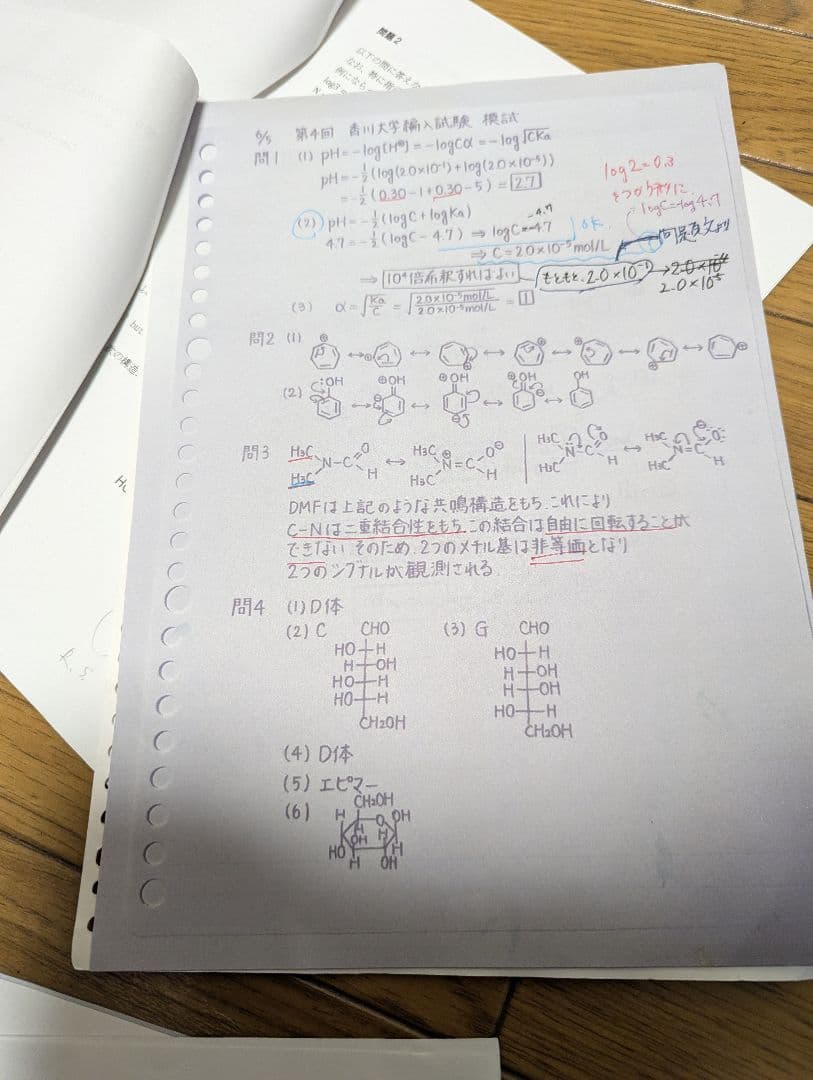 問題2
以下の問に答えな
6/5 第4回 香川大学編入試験 模試
問1 (1) pH=-log[H⊕]=-logCα=-log√CKa
pH=-1/2(log(2.0×10⁻¹)+log(2.0×10⁻⁵))
=-1/2(0.30-1+0.30-5)=2.7
log2=0.3
をつかう前に
logC=-log4.7
(2) pH=-1/2(logC+logKa)
4.7=-1/2(logC-4.7) ⇒ logC=-4.7
-4.7
OK
⇒ C=2.0×10⁻⁵mol/L
問題文より
⇒ 10⁴倍希釈すればよい
もともと、2.0×10⁻¹→2.0×10⁻⁴
2.0×10⁻⁵
(3) α=√Ka/C=√2.0×10⁻⁵mol/L/2.0×10⁻⁵mol/L=1
問2 (1)
⊕ ↔ ⊕ ↔ ⊕ ↔ ⊕ ↔ ⊕ ↔ ⊕ ↔ ⊕
(2) :OH ↔ ⊕OH ↔ ⊕OH ↔ ⊕OH ↔ OH
問3 H₃C H₃C N-C O H ↔ H₃C H₃C ⊕ N=C O⊖ H | H₃C H₃C N-C O H ↔ H₃C H₃C N=C O H
DMFは上記のような共鳴構造をもち、これにより
C-Nは二重結合性をもち、この結合は自由に回転することが
できない。そのため、2つのメチル基は非等価となり
2つのシグナルが観測される。
問4 (1)D体
(2) C CHO (3) G CHO
HO H HO H
H OH H OH
HO H H OH
HO H HO H
CH₂OH CH₂OH
(4) D体
(5) エピマー
(6) CH₂OH
H O OH
H OH H
HO H
H OH